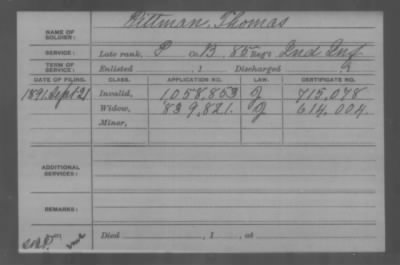 NAME OF SOLDIER: Pittman, Thomas
SERVICE: Late rank, P Co. B, 85 Reg't Ind Inf
TERM OF SERVICE: Enlisted , 1 Discharged , 1
DATE OF FILING. CLASS. APPLICATION NO. LAW. CERTIFICATE NO.
1891. Sept 21 Invalid, 1058,853 J 715,078
Widow, 839,821. J 614,004.
Minor,
ADDITIONAL SERVICES:
REMARKS:
Died , 1 , at